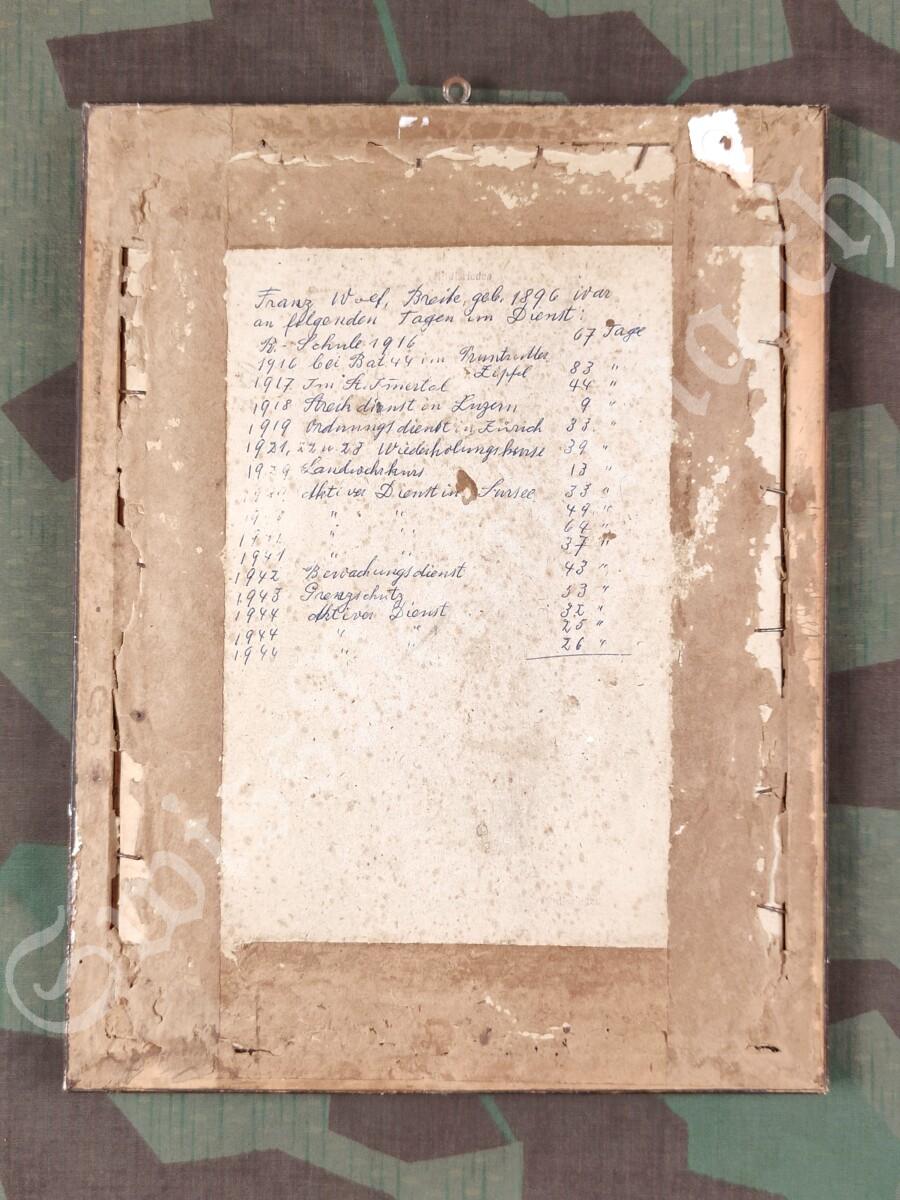 Franz Wolf, Breite, geb. 1896 war
an folgenden Tagen im Dienst:
R.- Schule 1916 67 Tage
1916 bei Bat 44 im Pruntrutter
Zipfel 83 "
1917 Im St. Imertal 44 "
1918 Streik dienst in Luzern 9 "
1919 Ordnungsdienst in Zürich 33 "
1921, 22 u 23 Wiederholungskurse 39 "
1939 Landwehrkurs 13 "
Aktiver Dienst in Sursee 33 "
" " 49 "
" " 64 "
1941 " " 37 "
1942 Bewachungsdienst 43 "
1943 Grenzschutz 33 "
1944 Aktiver Dienst 32 "
1944 " " 25 "
1944 " 26 "